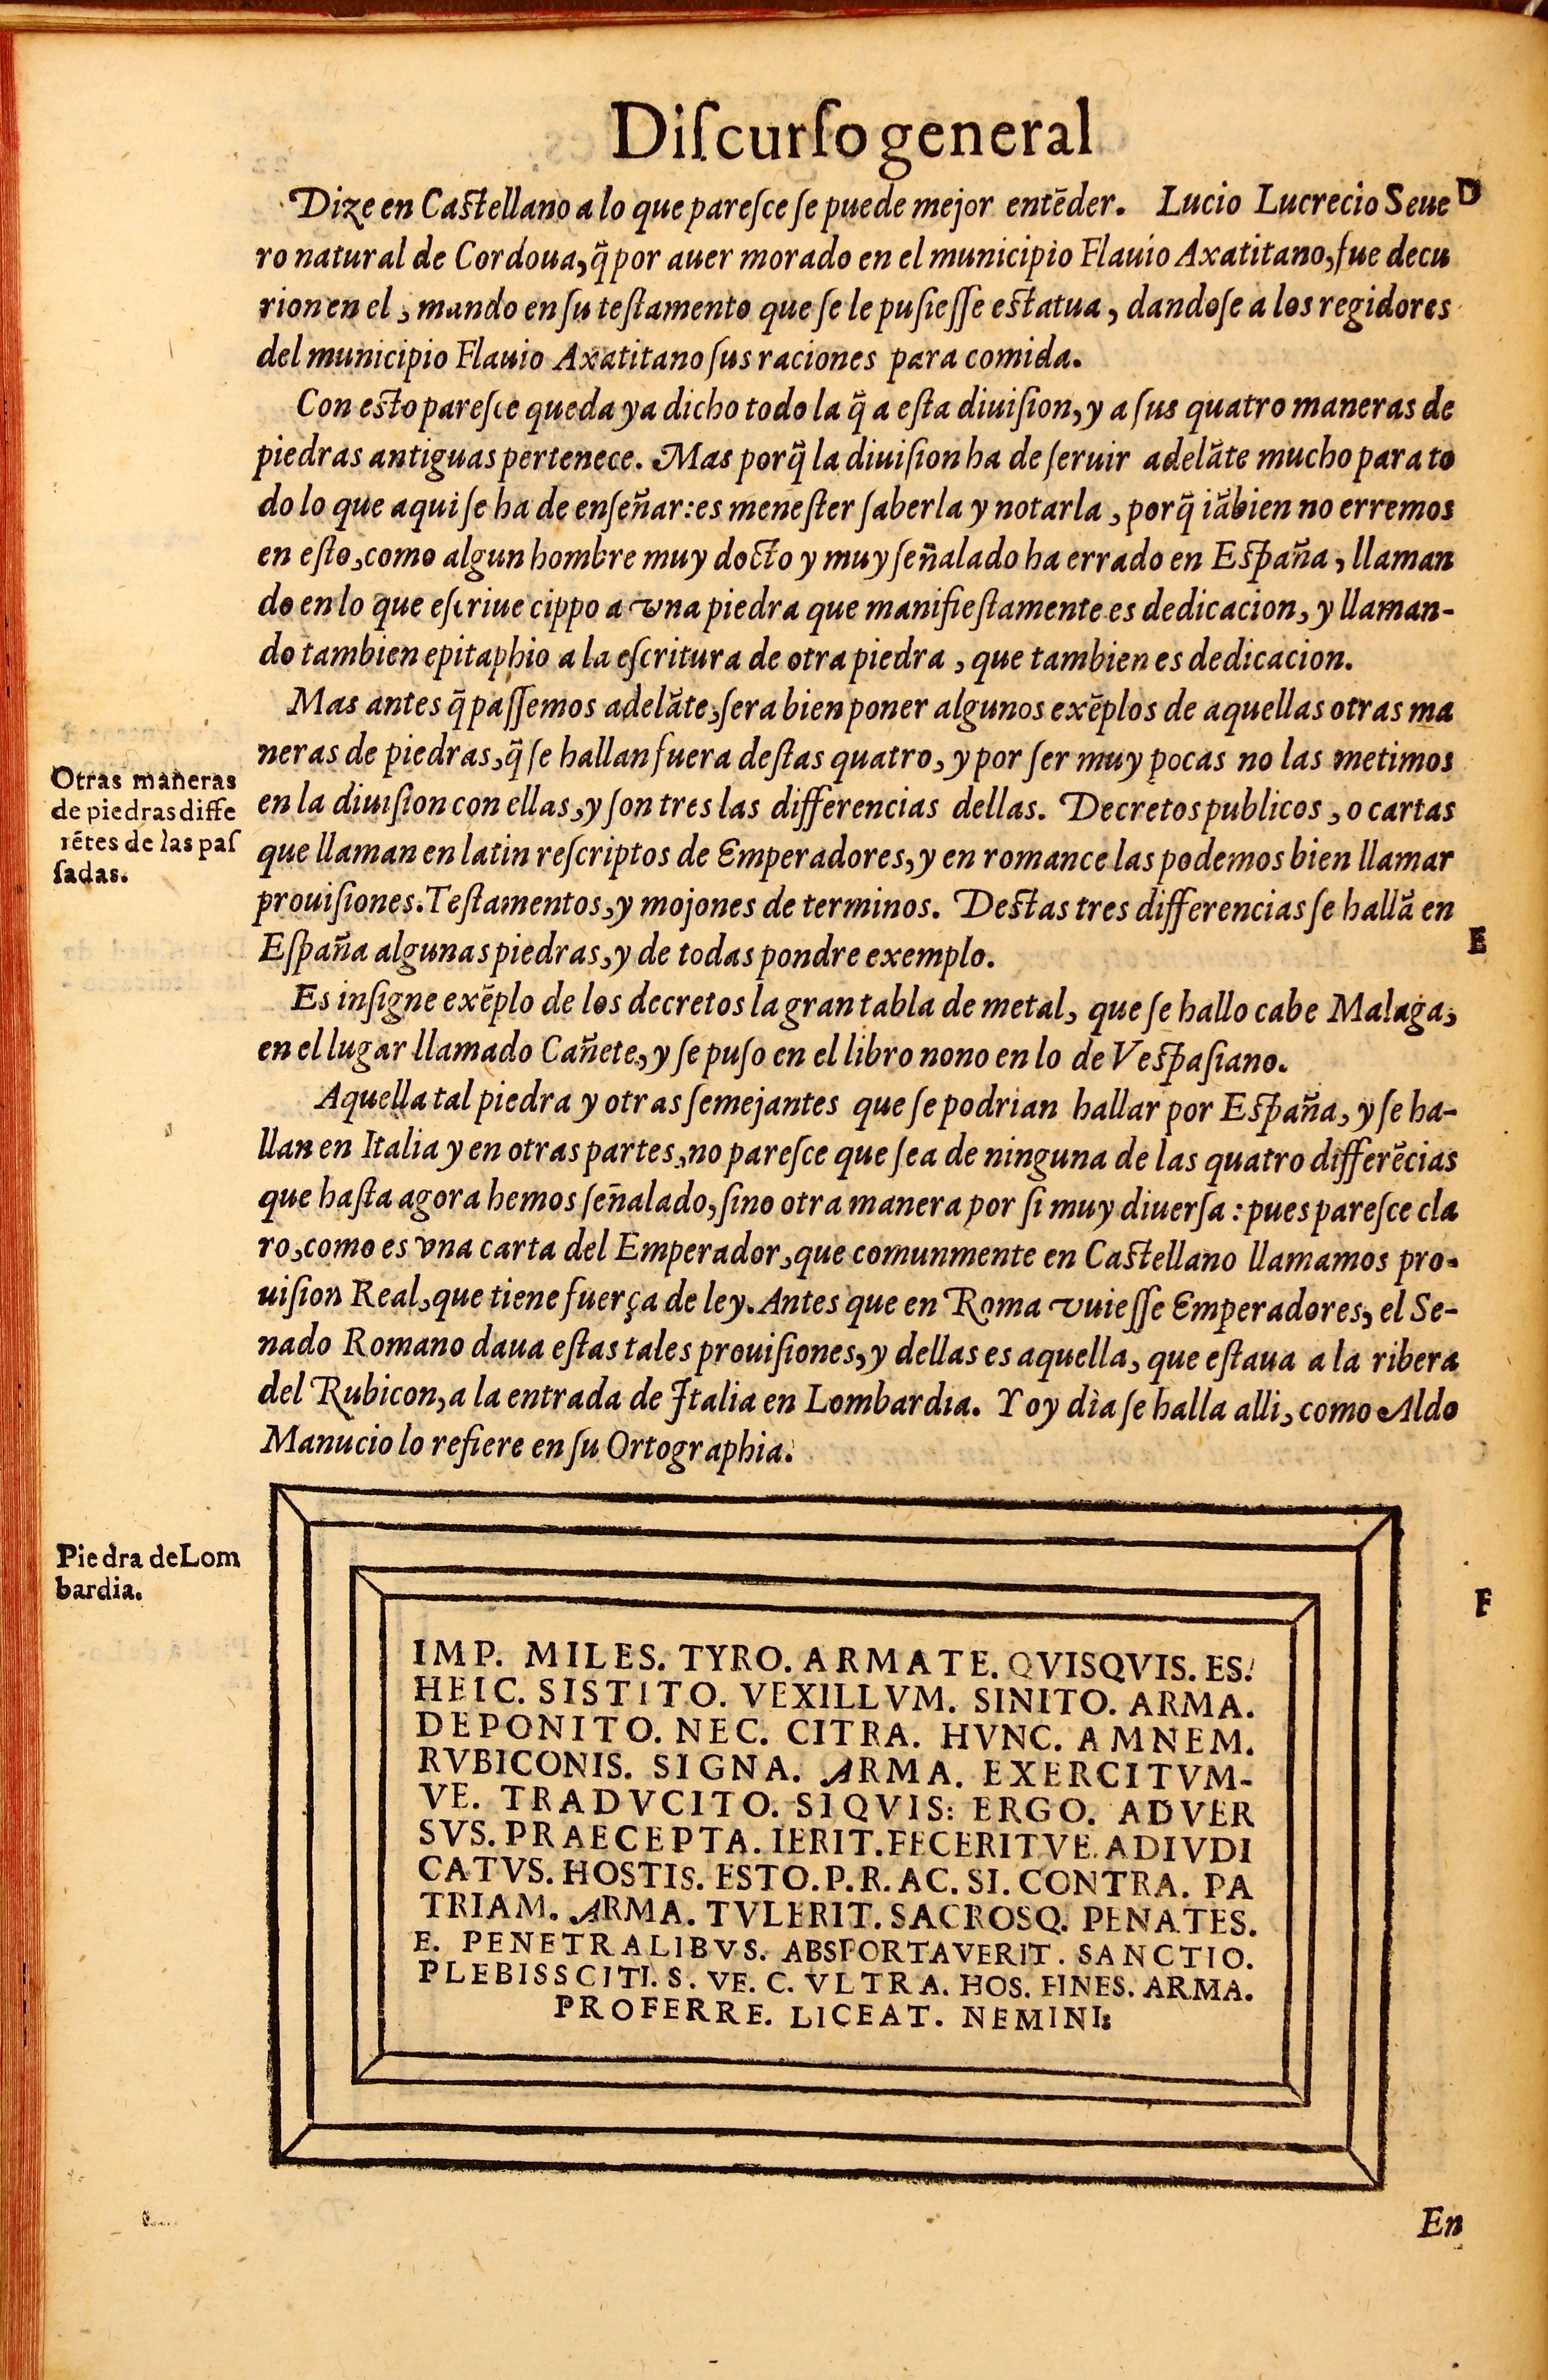 Diſcurſo general
Dize en Caſtellano a lo que pareſce ſe puede mejor entẽder. Lucio Lucrecio Seue D
ro natural de Cordoua, q̃ por auer morado en el municipio Flauio Axatitano, fue decu
rion en el, mando en ſu teſtamento que ſe le puſieſſe eſtatua, dandoſe a los regidores
del municipio Flauio Axatitano ſus raciones para comida.
Con eſto pareſce queda ya dicho todo la q̃ a eſta diuiſion, y a ſus quatro maneras de
piedras antiguas pertenece. Mas porq̃ la diuiſion ha de ſeruir adelãte mucho para to
do lo que aqui ſe ha de enſeñar: es meneſter ſaberla y notarla, porq̃ tãbien no erremos
en eſto, como algun hombre muy docto y muy ſeñalado ha errado en Eſpaña, llaman
do en lo que eſcriue cippo a vna piedra que manifieſtamente es dedicacion, y llaman-
do tambien epitaphio a la eſcritura de otra piedra, que tambien es dedicacion.
Mas antes q̃ paſſemos adelãte, ſera bien poner algunos exẽplos de aquellas otras ma
neras de piedras, q̃ ſe hallan fuera deſtas quatro, y por ſer muy pocas no las metimos
Otras maneras
de piedras diffe
rẽtes de las paſ
ſadas.
en la diuiſion con ellas, y ſon tres las differencias dellas. Decretos publicos, o cartas
que llaman en latin reſcriptos de Emperadores, y en romance las podemos bien llamar
prouiſiones. Teſtamentos, y mojones de terminos. Deſtas tres differencias ſe hallã en
E
Eſpaña algunas piedras, y de todas pondre exemplo.
Es inſigne exẽplo de los decretos la gran tabla de metal, que ſe hallo cabe Malaga,
en el lugar llamado Cañete, y ſe puſo en el libro nono en lo de Veſpaſiano.
Aquella tal piedra y otras ſemejantes que ſe podrian hallar por Eſpaña, y ſe ha-
llan en Italia y en otras partes, no pareſce que ſea de ninguna de las quatro differẽcias
que haſta agora hemos ſeñalado, ſino otra manera por ſi muy diuerſa: pues pareſce cla
ro, como es vna carta del Emperador, que comunmente en Caſtellano llamamos pro-
uiſion Real, que tiene fuerça de ley. Antes que en Roma vuieſſe Emperadores, el Se-
nado Romano daua eſtas tales prouiſiones, y dellas es aquella, que eſtaua a la ribera
del Rubicon, a la entrada de Italia en Lombardia. Y oy dia ſe halla alli, como Aldo
Manucio lo refiere en ſu Ortographia.
Piedra de Lom
bardia.
F
IMP. MILES. TYRO. ARMATE. QVISQVIS. ES.
HEIC. SISTITO. VEXILLVM. SINITO. ARMA.
DEPONITO. NEC. CITRA. HVNC. AMNEM.
RVBICONIS. SIGNA. ARMA. EXERCITVM-
VE. TRADVCITO. SIQVIS: ERGO. ADVER
SVS. PRAECEPTA. IERIT. FECERITVE. ADIVDI
CATVS. HOSTIS. ESTO. P. R. AC. SI. CONTRA. PA
TRIAM. ARMA. TVLERIT. SACROSQ. PENATES.
E. PENETRALIBVS. ABSPORTAVERIT. SANCTIO.
PLEBISSCITI. S. VE. C. VLTRA. HOS. FINES. ARMA.
PROFERRE. LICEAT. NEMINI:
En